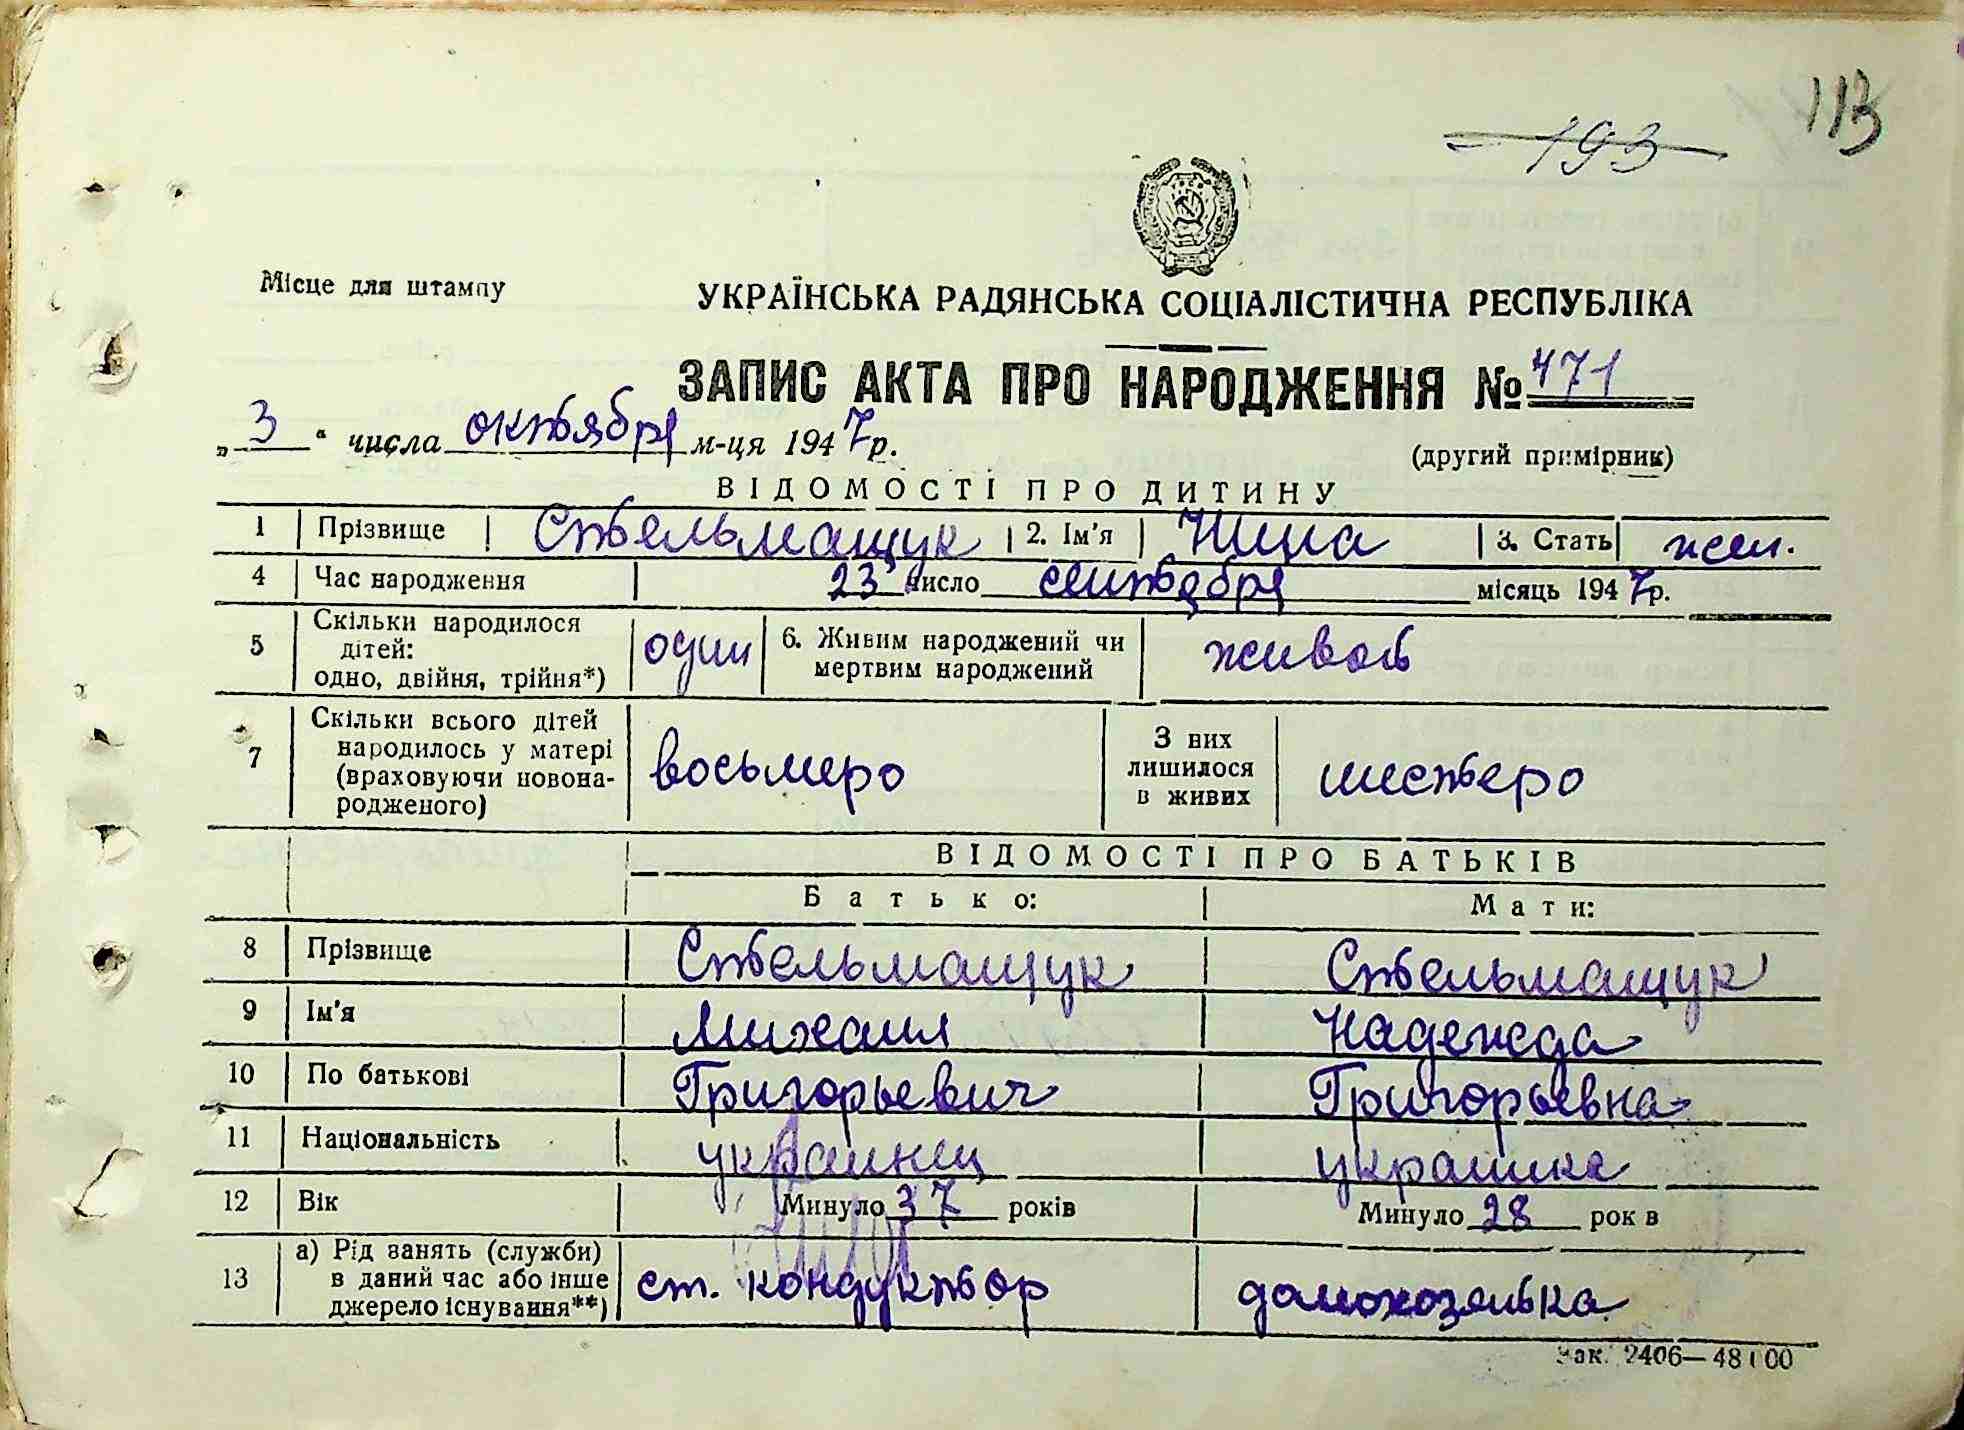 113
193
Місце для штампу
УКРАЇНСЬКА РАДЯНСЬКА СОЦІАЛІСТИЧНА РЕСПУБЛІКА
ЗАПИС АКТА ПРО НАРОДЖЕННЯ № 471
„ 3 “ числа октября м-ця 1947 р.
(другий примірник)
ВІДОМОСТІ ПРО ДИТИНУ
1 Прізвище Стельмащук 2. Ім'я Нина 3. Стать жен.
4 Час народження 23 число сентября місяць 1947 р.
5 Скільки народилося дітей: одно, двійня, трійня*) один 6. Живим народжений чи мертвим народжений живой
7 Скільки всього дітей народилось у матері (враховуючи новона-родженого) восьмеро З них лишилося в живих шестеро
ВІДОМОСТІ ПРО БАТЬКІВ
Батько: Мати:
8 Прізвище Стельмащук Стельмащук
9 Ім'я Михаил Надежда
10 По батькові Григорьевич Григорьевна
11 Національність украинец украинка
12 Вік Минуло 37 років Минуло 28 рок в
13 а) Рід занять (служби) в даний час або інше джерело існування**) ст. кондуктор домохозяйка
Зак. 2406—48100